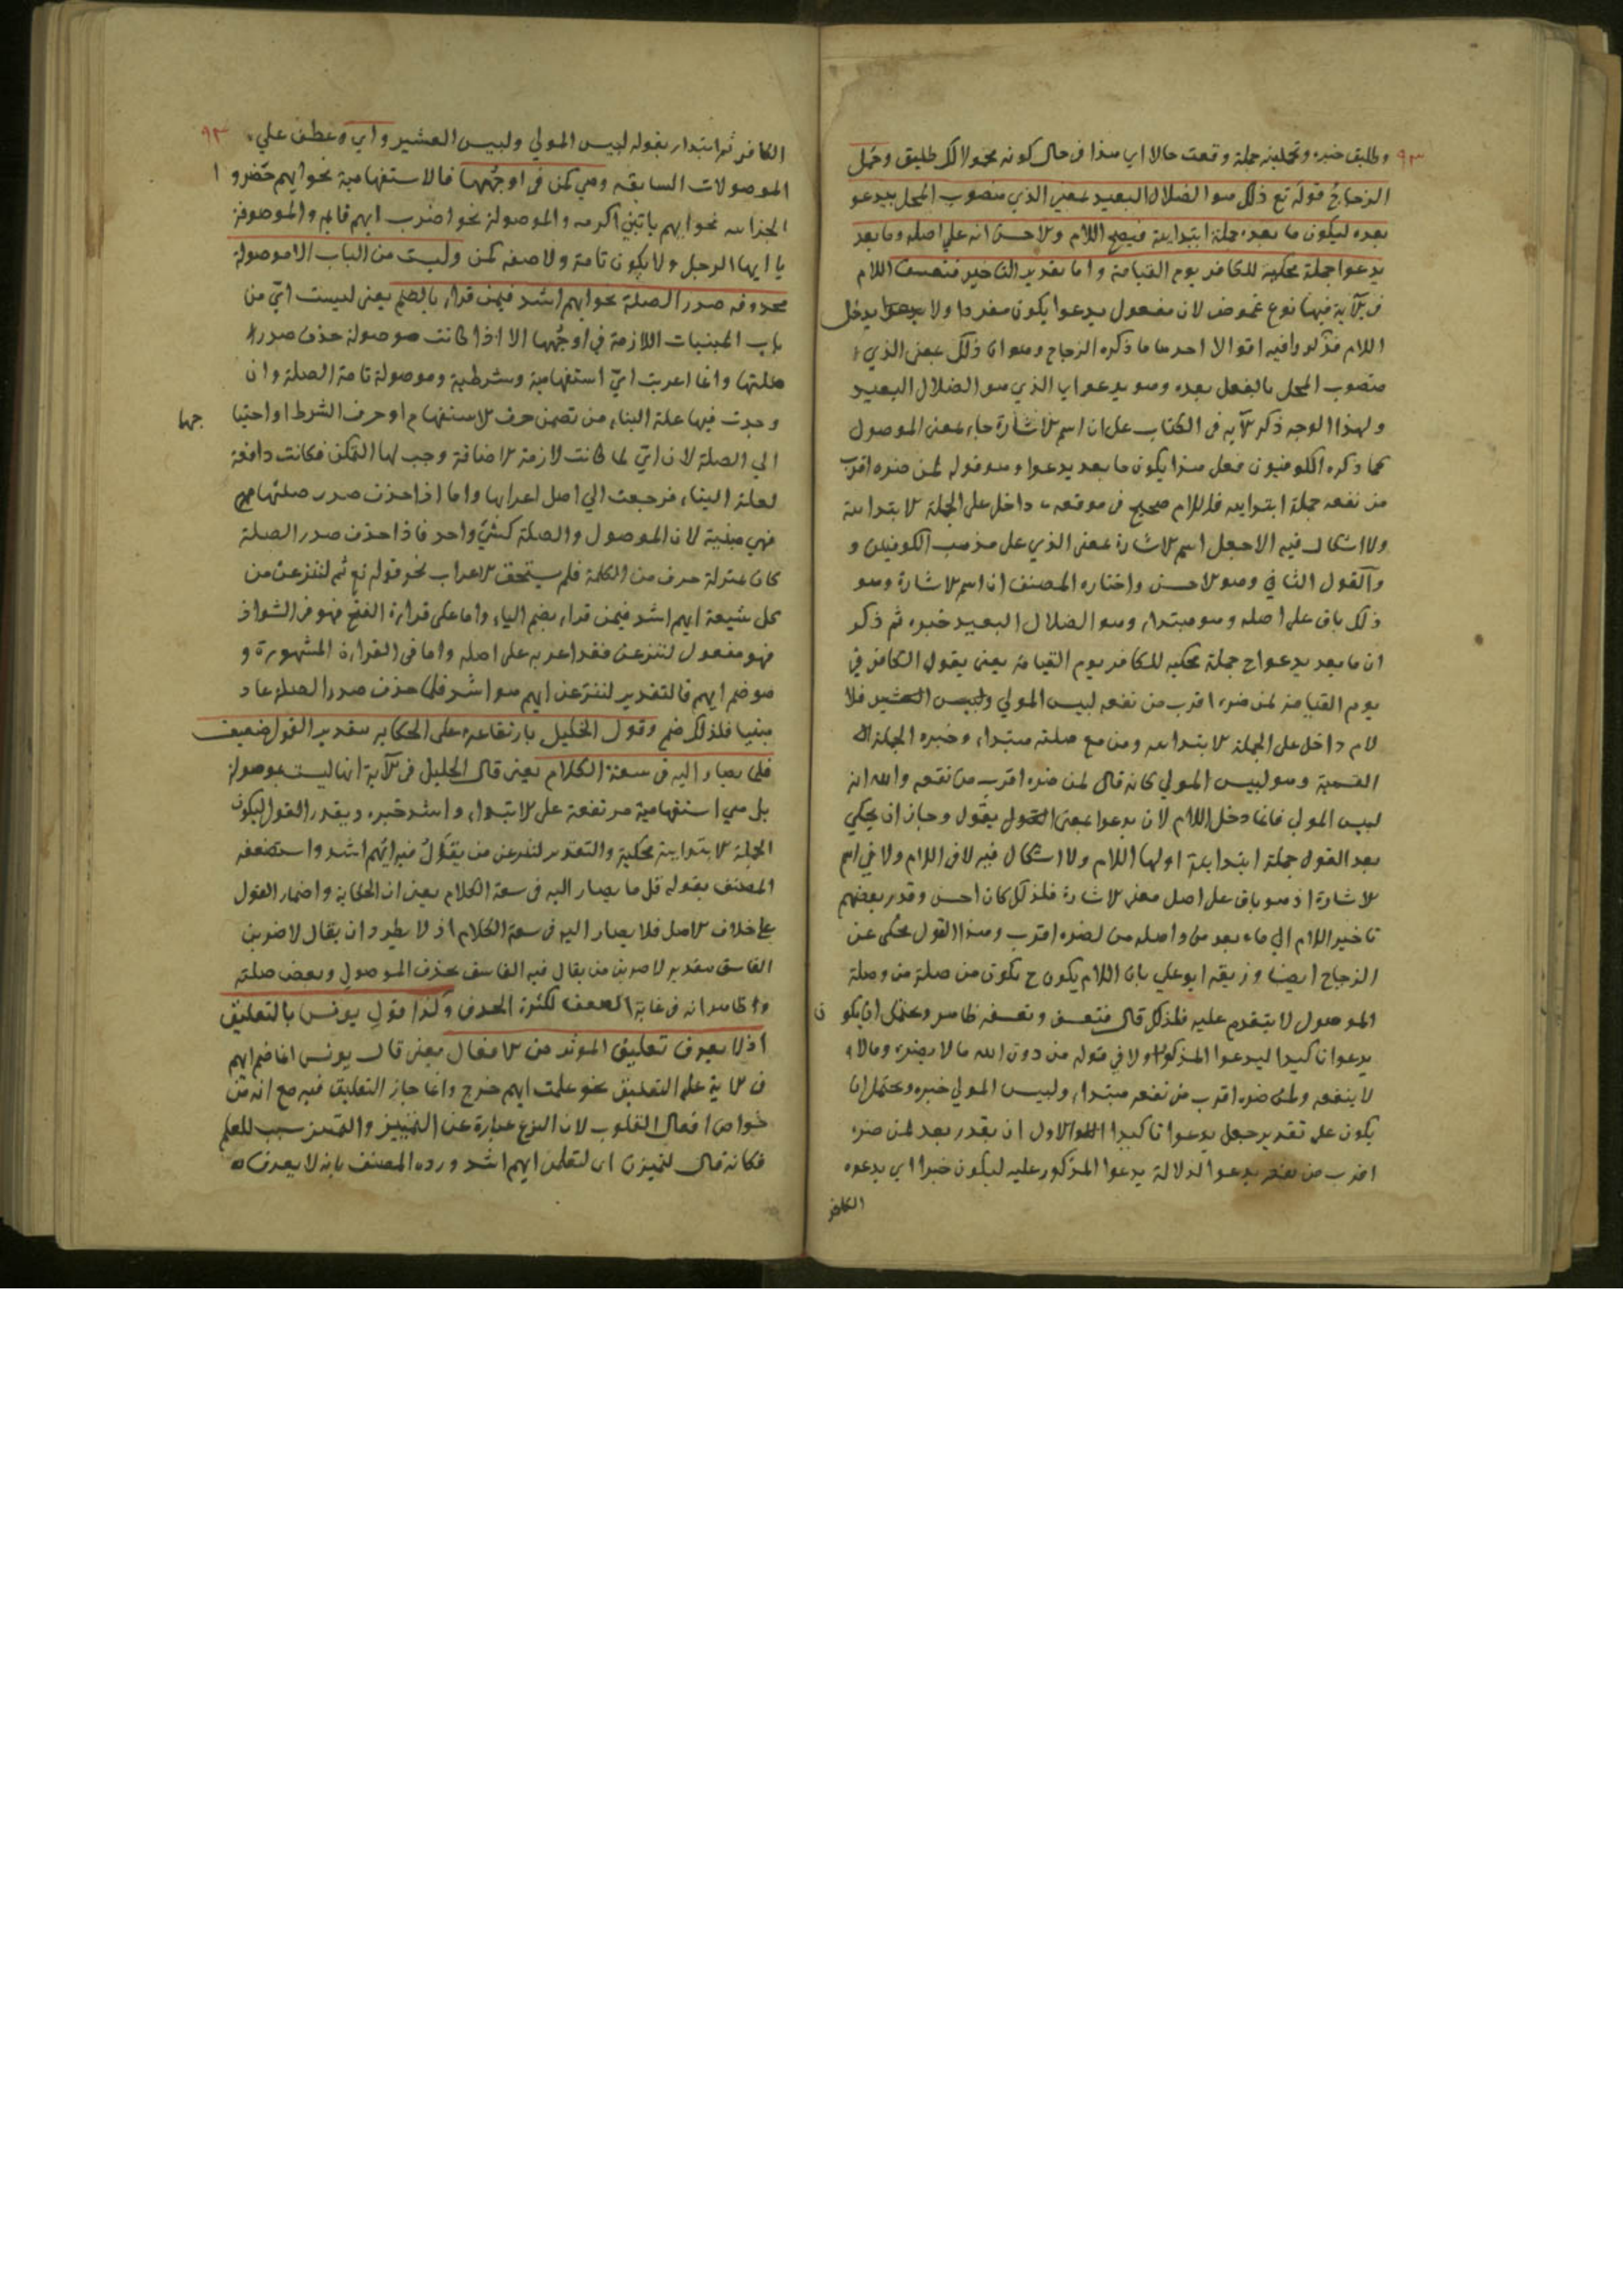 ٩٣ وطليق خبره وتحملين جملة وقعت حالا اي هذا في حال كونه محمولا لك طليق وحمل
الزجاج قوله تع ذلك هو الضلال البعيد بمعنى الذي منصوب المحل بيدعو
بعده ليكون ما بعده جملة ابتدائية فيصح اللام والاحسن انه على اصله وما بعد
يدعوا جملة محكية للكافر يوم القيامة واما تقدير التاخير فتعسف اللام
في الآية فيها نوع غموض لان مفعول يدعوا يكون مفردا ولا يدخل
اللام فذكروا فيه اقوالا احدها ما ذكره الزجاج وهو ان ذلك بمعنى الذي
منصوب المحل بالفعل بعده وهو يدعو اي الذي هو الضلال البعيد
ولهذا الوجه ذكر الآية في الكتاب على ان اسم الاشارة جاء بمعنى الموصول
كما ذكره الكوفيون فعلى هذا يكون ما بعد يدعوا وهو قوله لمن ضره اقرب
من نفعه جملة ابتدايية فاللام صحيح في موقعه داخل على الجملة الابتدائية
ولا اشكال فيه الا جعل اسم الاشارة بمعنى الذي على مذهب الكوفيين و
والقول الثاني وهو الاحسن واختاره المصنف ان اسم الاشارة وهو
ذلك باق على اصله وهو مبتداء وهو الضلال البعيد خبره ثم ذكر
ان ما بعد يدعوا ح جملة محكية للكافر يوم القيامة يعني يقول الكافر في
يوم القيامة لمن ضره اقرب من نفعه لبيس المولي ولبيس العشير فلا
لام داخل على الجملة الابتدايية ومن مع صلته مبتداء وخبره الجملة
القسمية وهو لبيس المولي كانه قال لمن ضره اقرب من نفعه والله انه
لبيس المولي فانما دخل اللام لان يدعوا بمعنى القول يقول وجاز ان يحكي
بعد القول جملة ابتدائية اولها اللام ولا اشكال فيه لا في اللام ولا في اسم
الاشارة اذ هو باق على اصل معنى الاشارة فلذلك كان احسن وقدر بعضهم
تاخير اللام الي ما بعد من واصله من لضره اقرب وهذا القول محكى عن
الزجاج ايضا وزيفه ابو علي بان اللام يكون ح يكون من صلة من وصلة
الموصول لا يتقدم عليه فلذلك قال فتعسف وتعسفه ظاهر ويحتمل ان يكون
يدعوا تاكيدا ليدعوا المذكور اولا في قوله من دون الله ما لا يضره وما لا
لا ينفعه ولمن ضره اقرب من نفعه مبتداء ولبيس المولي خبره ويحتمل ان
يكون على تقدير جعل يدعوا تاكيدا للاول ان يقدر بعد لمن ضره
اقرب من نفعه يدعوا لدلالة يدعوا المذكور عليه ليكون خبرا اي يدعوه
الكافر
٩٣
الكافر ثم ابتداء بقوله لبيس المولي ولبيس العشير واي وعطف علي
الموصولات السابقه وهي كمن في اوجهها فالاستفهامية نحو ايهم حضر و
الجزائيه نحو ايهم ياتني اكرمه والموصولة نحو اضرب ايهم قايم والموصوفة
يا ايها الرجل ولا يكون تامة ولا صفه كمن وليست من الباب الا موصولة
محذوفه صدر الصلة نحو ايهم اشد فيمن قراء بالضم يعني ليست اي من
باب المبنيات اللازمة في اوجهها الا اذا كانت موصولة حذف صدر
صلتها وانما اعربت اي استفهامية وشرطية وموصولة تامة الصلة وان
وجدت فيها علة البناء من تضمن حرف الاستفهام او حرف الشرط او احتيا
جها
الي الصلة لان اي لما كانت لازمة الاضافة وجب لها التمكن فكانت دافعة
لعلة البناء فرجعت الي اصل اعرابها واما اذا حذف صدر صلتها
فهي مبنية لان الموصول والصلة كشئ واحد فاذا حذف صدر الصلة
كان بمنزلة حرف من الكلمة فلم يستحق الاعراب نحو قوله تع ثم لننزعن من
كل شيعة ايهم اشد فيمن قراء بضم الياء واما على قراءة الفتح فهو في الشواذ
فهو مفعول لننزعن فقد اعربه على اصله واما في القراءة المشهورة و
هو ضم ايهم فالتقدير لننزعن ايهم هو اشد فلما حذف صدر الصلة عاد
مبنيا فلذلك ضم وقول الخليل بارتفاعه على الحكايه بتقدير القول ضعيف
قلما يصار اليه في سعة الكلام يعني قال الخليل في الآية انها ليست بموصولة
بل هي استفهامية مرتفعة على الابتداء واشد خبره ويقدر القول ليكون
الجملة الابتدائية محكية والتقدير لننزعن من يقول فيه ايهم اشد واستضعفه
المصنف بقوله قل ما يصار اليه في سعة الكلام يعني ان الحكاية واضمار القول
على خلاف الاصل فلا يصار اليه في سعة الكلام اذ لا يطرد ان يقال لاضربن
الفاسق بتقدير لاضربن من يقال فيه الفاسق بحذف الموصول وبعض صلته
والظاهر انه في غاية الضعف لكثرة الحذف وكذا قول يونس بالتعليق
اذ لا يعرف تعليق المؤثر من الافعال يعني قال يونس انما ضم ايهم
في الاية على التعليق نحو علمت ايهم خرج وانما جاز التعليق فيه مع انه من
خواص افعال القلوب لان النزع عبارة عن التمييز والتمييز سبب للعلم
فكانه قال لنميزن اي لتعلمن ايهم اشد ورده المصنف بانه لا يعرف